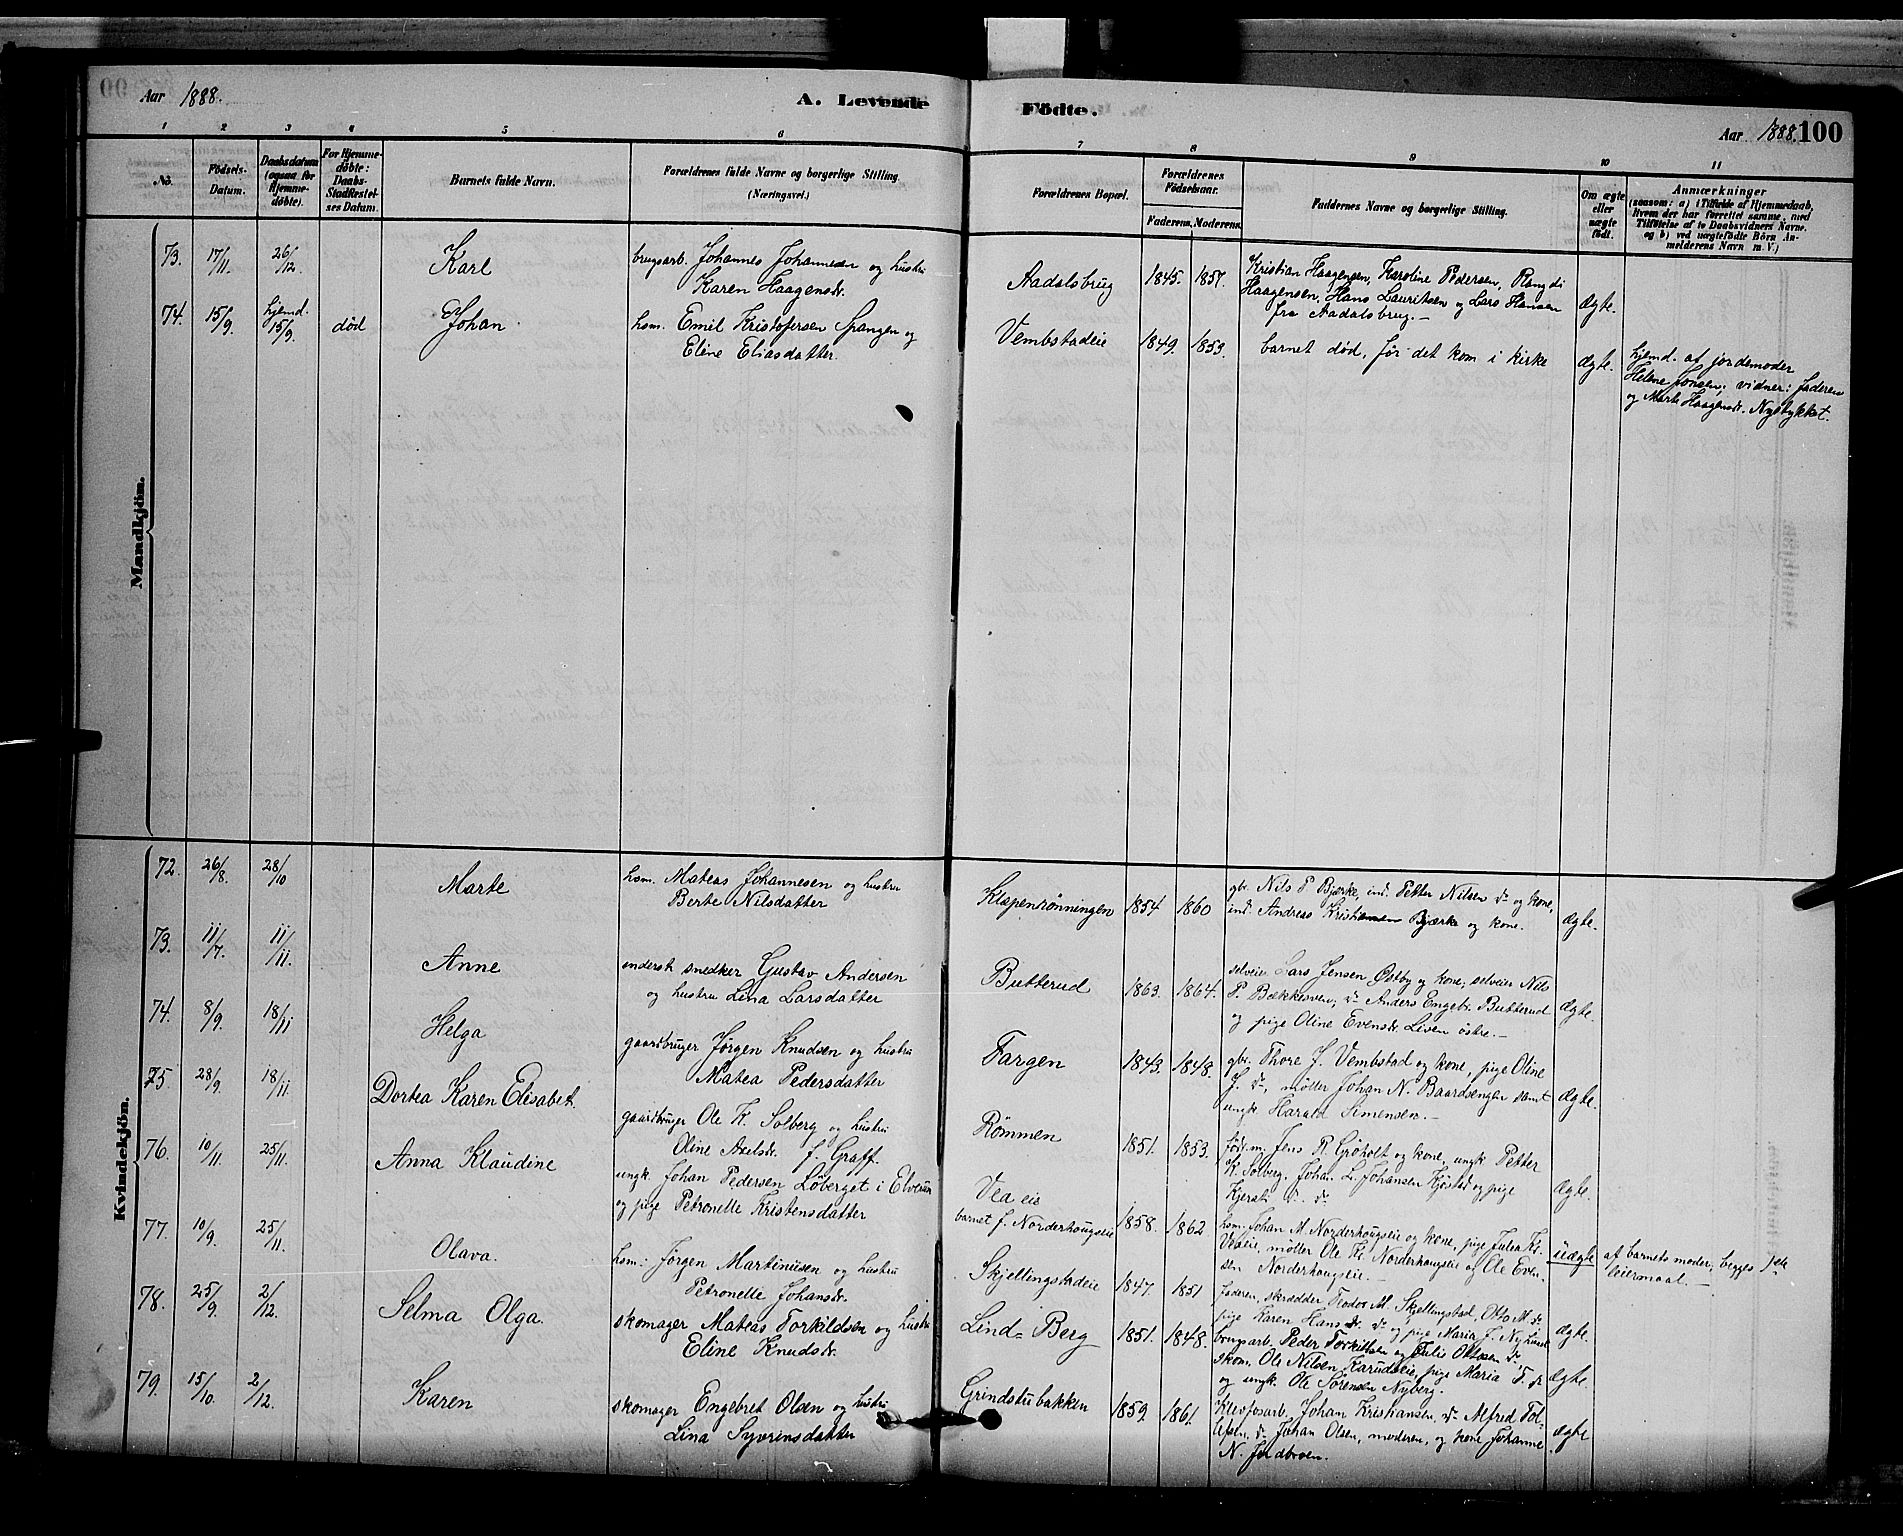 Aar 1888.
A. Levende Födte.
Aar 1888. 100
1 2 3 4 5 6 7 8 9 10 11
No.
Födsels-Datum.
Daabsdatum (ogsaa for Hjemmedöbte).
For Hjemmedöbte: Daabs-Stadfæstelses Datum.
Barnets fulde Navn.
Forældrenes fulde Navne og borgerlige Stilling. (Næringsvei.)
Forældrenes Bopæl.
Forældrenes Födselsaar.
Faderens. Moderens.
Faddernes Navne og borgerlige Stilling.
Om ægte eller uægte födt.
Anmærkninger
(saasom: a) i Tilfælde af Hjemmedaab, Hvem der har forrettet samme, med Tilföielse af to Daabsvidners Navne, og b) ved uægtefödte Börn Anmelderens Navn m. V.)
Mandkjön.
73. 17/11. 26/12 Karl brugsarb. Johannes Johannesen og hustru
Karen Haagensdr.
Aadalsbrug 1845. 1857. Kristian Haagensen, Karoline Pedersen, Rangdi
Haagensen, Hans Lauritsen og Lars Hansen
fra Aadalsbrug.— Ægte.
74. 15/9. hjemd. 15/9. død Johan. hsm. Emil Kristofersen Spangen og
Eline Eliasdatter
Vembstadeie 1849. 1853. barnet død, før det kom i kirke Ægte.
hjemd. af jordemoder
Helene Jonsen; vidner: faderen
og Marte Haagensdr. Nystykket.
Kvindekjön.
72. 26/8. 28/10 Marte hsm. Mateas Johannesen og hustru
Berte Nilsdatter
Klæpenrønningen 1854 1860 gbr. Nils P. Bjærke, ind. Petter Nilsen do og kone,
ind. Andreas Kristiansen Bjærke og kone. Ægte.
73. 11/7. 11/11. Anne snedker Gustav Andersen
og hustru Lina Larsdatter
Butterud 1863. 1864. selveier Lars Jensen Østby og kone, selveier Nils
P. Bækkesven, do Anders Engebr. Butterud
og pige Oline Evensdr. Lisen östre.— Ægte.
74. 8/9. 18/11 Helga gaardbruger Jørgen Knudsen og hustru
Matea Pedersdatter
Fargen 1843. 1848. gbr. Thore J. Vembstad og kone, pige Oline
J. do, møller Johan N. Baardsengen samt
ungk. Harald Simensen.— Ægte.
75. 28/9. 18/11. Dortea Karen Elisabet. gaardbruger Ole K. Solberg og hustru
Oline Axelsdr. f. Graff.
Rømmen 1851. 1853. Jens R. Grøholt og kone, ungk. Petter
K. Solberg, Johan L. Johansen Kjøstad og pige
Kjersti do do Ægte.
76. 10/11. 25/11. Anna Klaudine ungk. Johan Pedersen Løberget i Elverum
og pige Petronelle Kristensdatter
Vea eie
barnet f. Norderhougseie 1858. 1862 hsm. Johan M. Norderhougseie og kone, pige Julea Kr.
Veaeie, møller Ole Kr. Norderhougseie og Ole Even-
sen Norderhougseie.— uægte af barnets moder; begges 1ste
leiermaal.—
77. 10/9. 25/11. Olava. hsm. Jørgen Martinusen og hustru
Petronelle Johansdr.
Skjellingstadeie 1847. 1851 faderen, skrædder Teodor M. Skjellingstad, Otto M. do
pige Karen Hansdr. do og pige Maria J. Ny Lund Ægte.
78. 25/9. 2/12. Selma Olga. skomager Mateas Torkildsen og hustru
Eline Knudsdr.
Lind-Berg 1851. 1848. brugsarb. Peder Torkildsen og Julie Ottosen do
skom. Ole Nilsen Karudseie, pige Maria T. do
og ungk. Ole Sørensen Nyberg. Ægte.
79. 15/10. 2/12. Karen skomager Engebret Olsen og hustru
Lina Syverinsdatter
Grindstubakken 1859. 1861. Klevfosarb. Johan Kristiansen, do Alfred Tol-
lefsen, do Johan Olsen, moderen, og kone Johanne
N. Jordbroen. Ægte